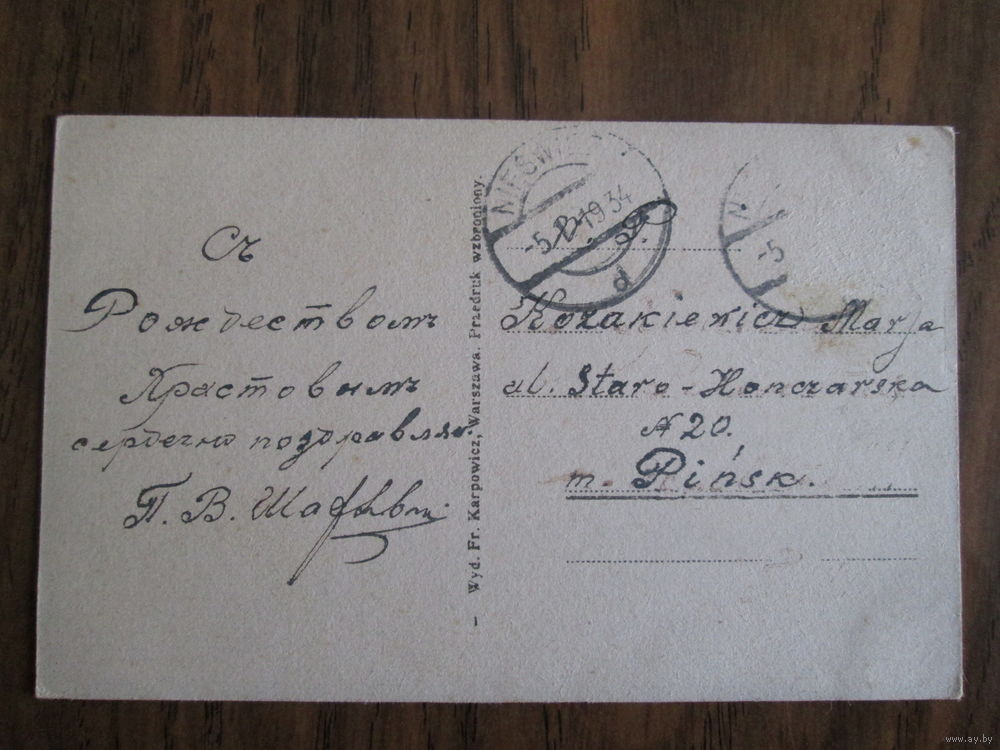 Съ
Рождествомъ
Христовымъ
сердечно поздравляю.
П. В.
- Wyd. Fr. Karpowicz, Warszawa. Przedruk wzbroniony.
NIEŚWIE
-5.1 19 34
d
N
-5
Kozakiewicz Marja
ul. Staro-Honczarska
N 20.
m. Pińsk.
www.ay.by